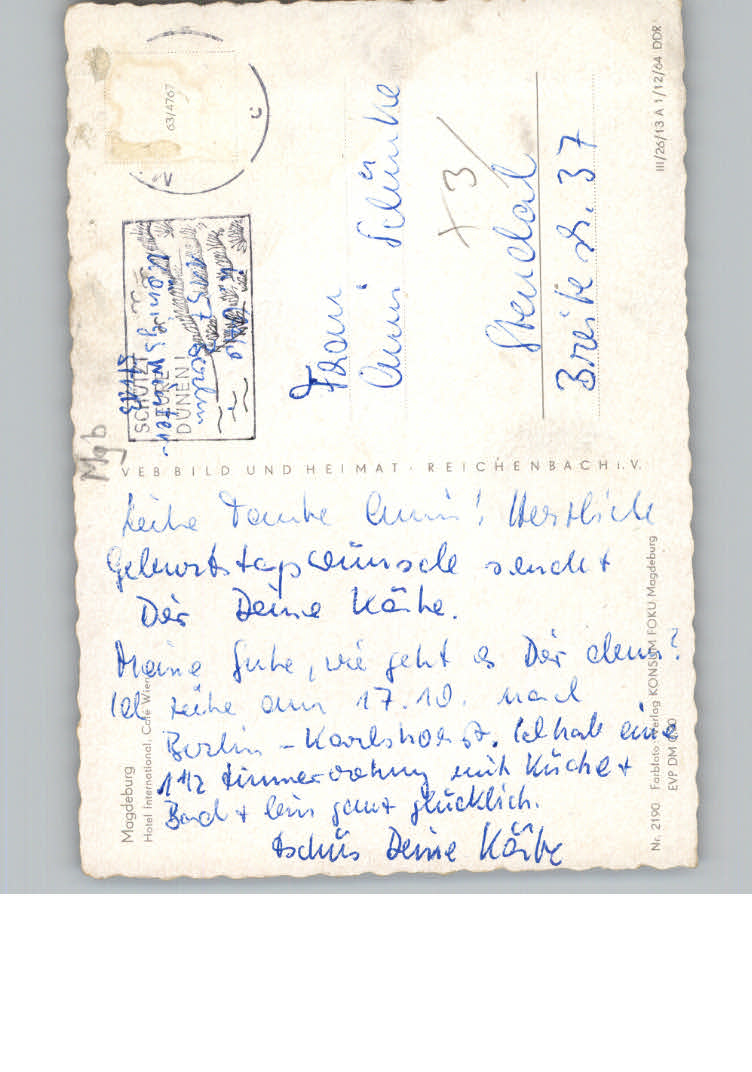 Mgb
63/4767
SCHÜTZT
EURE
DÜNEN!
Königswinter-
Berlin
Frau
Anni Schünke
+3/
Stendal
Breite str. 37
III/26/13 A 1/12/64 DDR
VEB BILD UND HEIMAT · REICHENBACH i. V.
Liebe Tante Anni! Herzliche
Geburtstagswünsche sendet
Dir Deine Käthe.
Meine Gute, wie geht es Dir denn?
Ich ziehe am 17.10. nach
Berlin - Karlshorst. Ich habe eine
1 1/2 Zimmerwohnung mit Küche +
Bad + bin ganz glücklich.
tschüs Deine Käthe
Magdeburg
Hotel International, Café Wien
Nr. 2190 Farbfoto: Verlag KONSUM FOKU Magdeburg
EVP DM